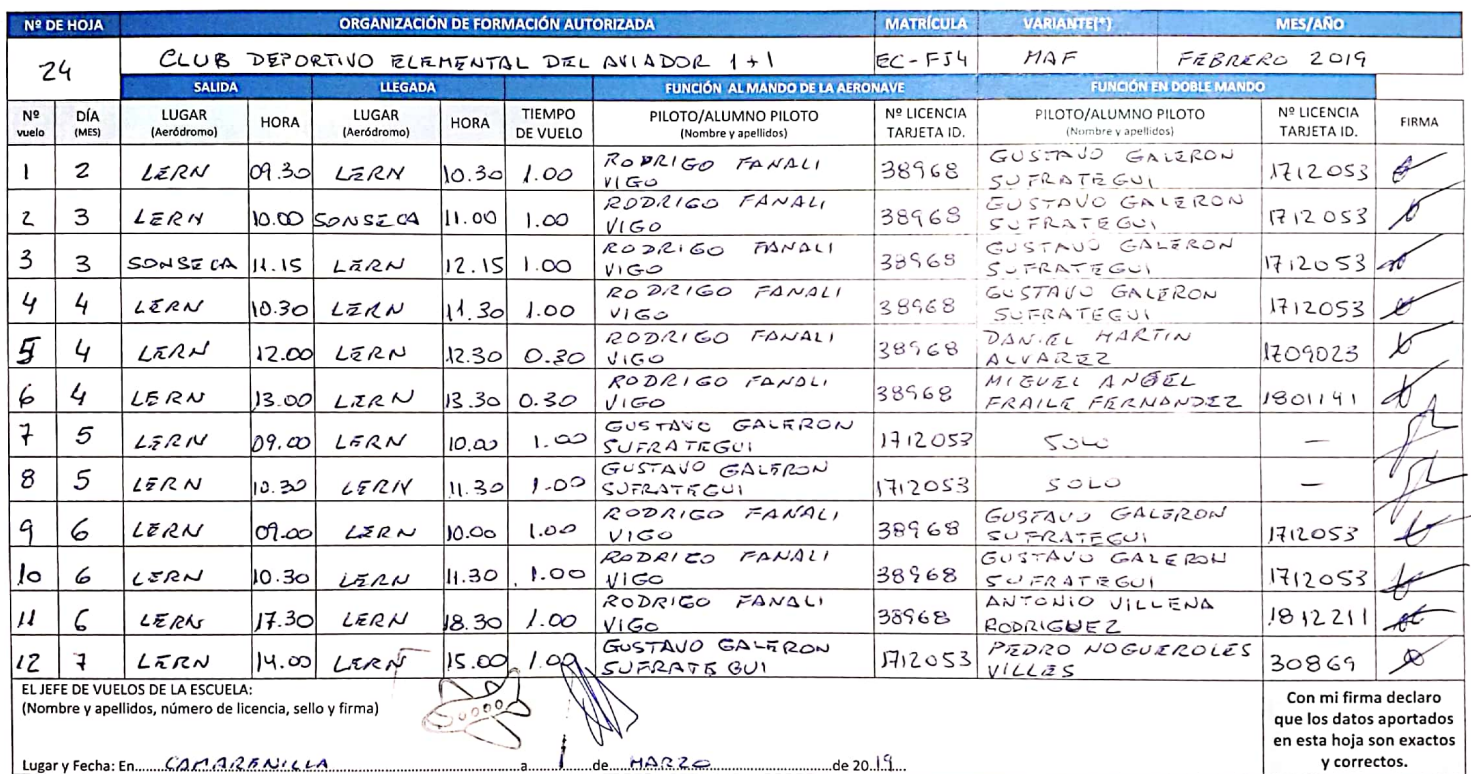 Nº DE HOJA ORGANIZACIÓN DE FORMACIÓN AUTORIZADA MATRÍCULA VARIANTE(*) MES/AÑO
24 CLUB DEPORTIVO ELEMENTAL DEL AVIADOR 1+1 EC-FJ4 MAF FEBRERO 2019
SALIDA LLEGADA FUNCIÓN AL MANDO DE LA AERONAVE FUNCIÓN EN DOBLE MANDO
Nº vuelo DÍA (MES) LUGAR (Aeródromo) HORA LUGAR (Aeródromo) HORA TIEMPO DE VUELO PILOTO/ALUMNO PILOTO (Nombre y apellidos) Nº LICENCIA TARJETA ID. PILOTO/ALUMNO PILOTO (Nombre y apellidos) Nº LICENCIA TARJETA ID. FIRMA
1 2 LERN 09.30 LERN 10.30 1.00 RODRIGO FANALI VIGO 38968 GUSTAVO GALERON SUFRATEGUI 1712053
2 3 LERN 10.00 SONSECA 11.00 1.00 RODRIGO FANALI VIGO 38968 GUSTAVO GALERON SUFRATEGUI 1712053
3 3 SONSECA 11.15 LERN 12.15 1.00 RODRIGO FANALI VIGO 38968 GUSTAVO GALERON SUFRATEGUI 1712053
4 4 LERN 10.30 LERN 11.30 1.00 RODRIGO FANALI VIGO 38968 GUSTAVO GALERON SUFRATEGUI 1712053
5 4 LERN 12.00 LERN 12.30 0.30 RODRIGO FANALI VIGO 38968 DANIEL MARTIN ALVAREZ 1709023
6 4 LERN 13.00 LERN 13.30 0.30 RODRIGO FANALI VIGO 38968 MIGUEL ANGEL FRAILE FERNANDEZ 1801141
7 5 LERN 09.00 LERN 10.00 1.00 GUSTAVO GALERON SUFRATEGUI 1712053 SOLO —
8 5 LERN 10.30 LERN 11.30 1.00 GUSTAVO GALERON SUFRATEGUI 1712053 SOLO —
9 6 LERN 09.00 LERN 10.00 1.00 RODRIGO FANALI VIGO 38968 GUSTAVO GALERON SUFRATEGUI 1712053
10 6 LERN 10.30 LERN 11.30 1.00 RODRIGO FANALI VIGO 38968 GUSTAVO GALERON SUFRATEGUI 1712053
11 6 LERN 17.30 LERN 18.30 1.00 RODRIGO FANALI VIGO 38968 ANTONIO VILLENA RODRIGUEZ 1812211
12 7 LERN 14.00 LERN 15.00 1.00 GUSTAVO GALERON SUFRATEGUI 1712053 PEDRO NOGUEROLES VILLES 30869
EL JEFE DE VUELOS DE LA ESCUELA:
(Nombre y apellidos, número de licencia, sello y firma)
Lugar y Fecha: En CAMARENILLA a 1 de MARZO de 2019
Con mi firma declaro
que los datos aportados
en esta hoja son exactos
y correctos.